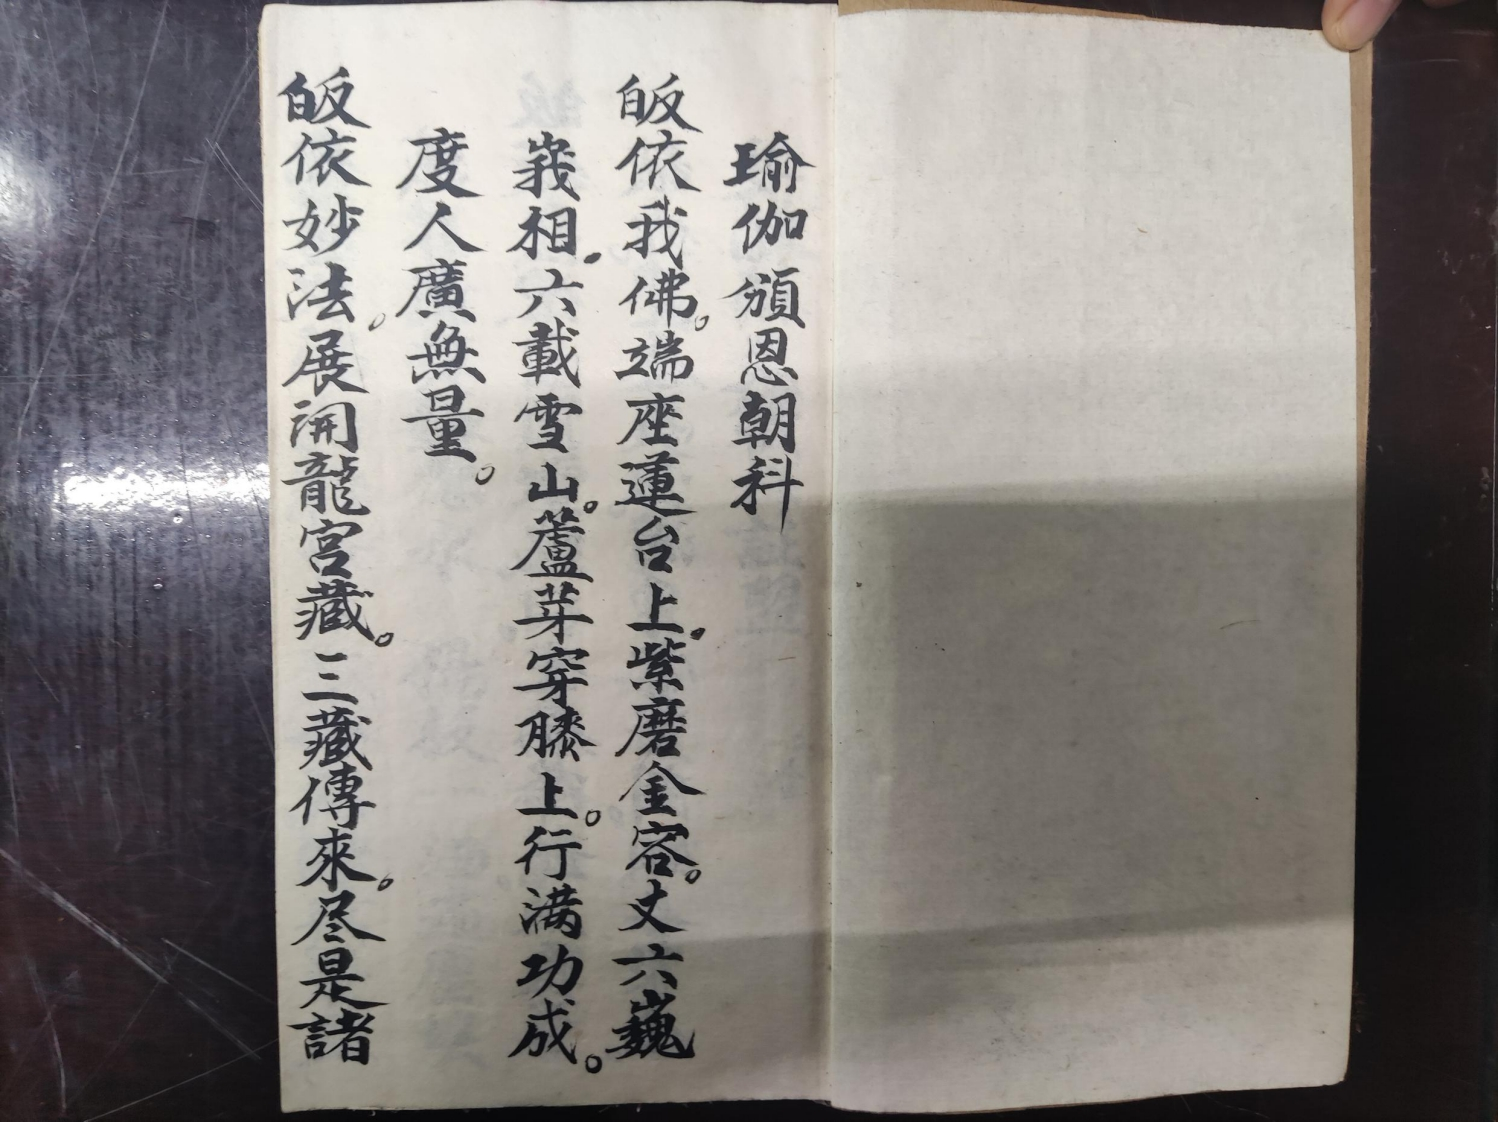 瑜伽頒恩朝科
皈依我佛。端座蓮台上。紫磨金容。丈六巍
峩相。六載雪山。蘆芽穿膝上。行满功成。
度人廣無量。
皈依妙法。展開龍宮藏。三藏傳來。尽是諸